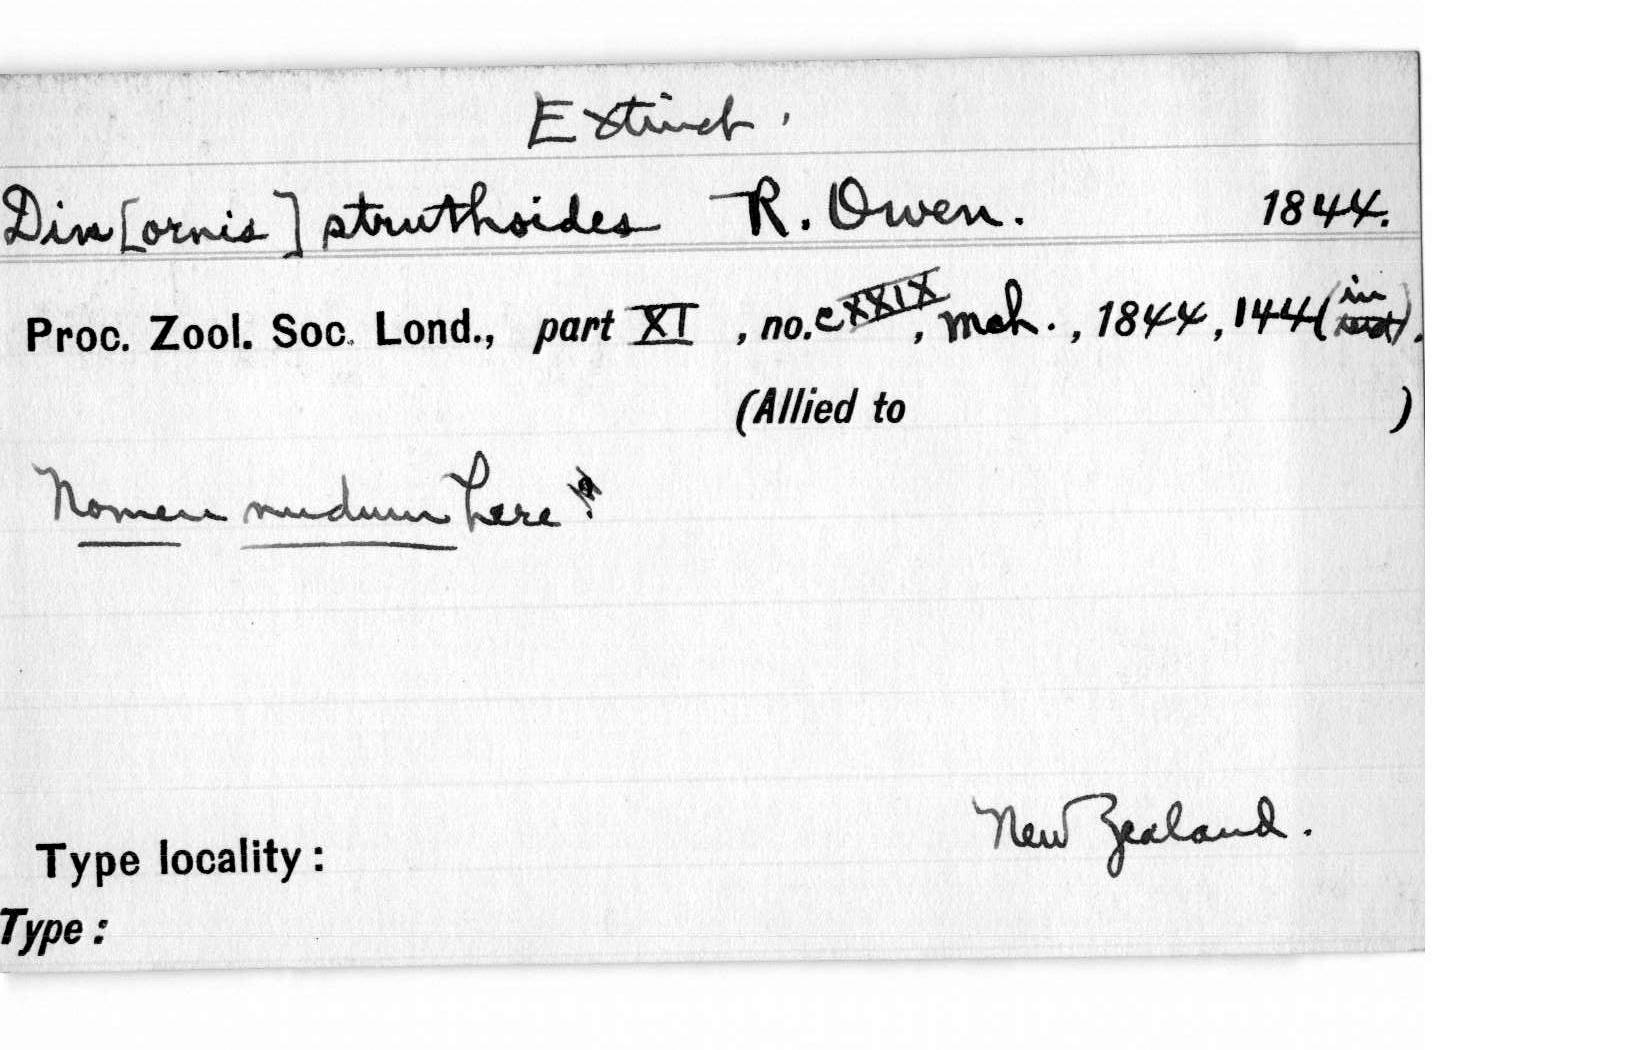 Extinct.
Din[ornis] struthoides R. Owen. 1844.
Proc. Zool. Soc. Lond., part XI, no. CXXIX, Mch., 1844, 144 (in text).
(Allied to )
Nomen nudum here?
New Zealand.
Type locality:
Type: